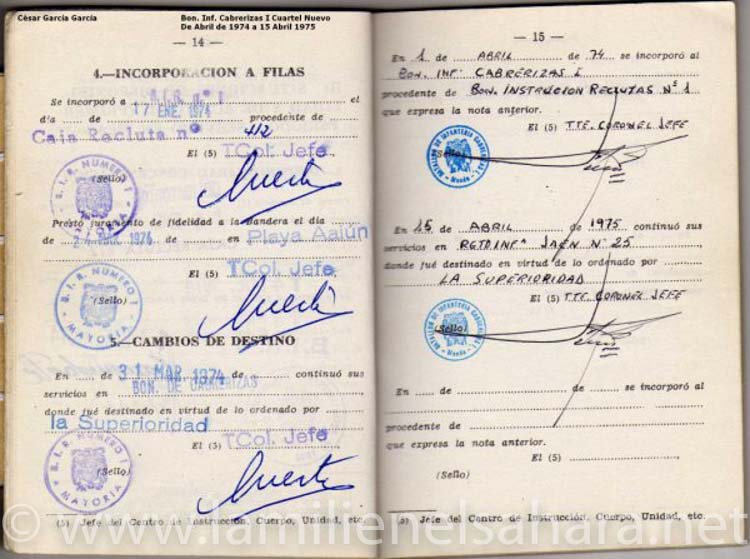 César García García
Bon. Inf. Cabrerizas I Cuartel Nuevo
De Abril de 1974 a 15 Abril 1975
— 14 —
4.—INCORPORACION A FILAS
Se incorporó a B.I.R. nº 1 el
día 17 ENE. 1974 procedente de
Caja Recluta nº 412
El (5) TCol. Jefe
(Sello)
B. I. R. NUMERO 1
MAYORIA
Prestó juramento de fidelidad a la bandera el día
de 1974 de en Playa Aaiun
El (5) TCol. Jefe
(Sello)
B. I. R. NUMERO 1
MAYORIA
5.—CAMBIOS DE DESTINO
En de 31 MAR. 1974 de continuó sus
servicios en BON. DE CABRERIZAS
donde fué destinado en virtud de lo ordenado por
la Superioridad
El (5) TCol. Jefe
(Sello)
B. I. R. NUMERO 1
MAYORIA
(5) Jefe del Centro de Instrucción, Cuerpo, Unidad, etc.
— 15 —
En 1 de ABRIL de 74 se incorporó al
BON. INFª CABRERIZAS I
procedente de BON. INSTRUCION RECLUTAS Nº 1
que expresa la nota anterior.
El (5) TTE. CORONEL JEFE
(Sello)
BATALLON DE INFANTERIA CABRERIZAS I
Mando
En 15 de ABRIL de 1975 continuó sus
servicios en RGTO INFª JAEN Nº 25
donde fué destinado en virtud de lo ordenado por
LA SUPERIORIDAD
El (5) TTE. CORONEL JEFE
(Sello)
BATALLON DE INFANTERIA CABRERIZAS I
Mando
En de de se incorporó al
procedente de
que expresa la nota anterior.
El (5)
(Sello)
(5) Jefe del Centro de Instrucción, Cuerpo, Unidad, etc.
© www.lamilienelsahara.net